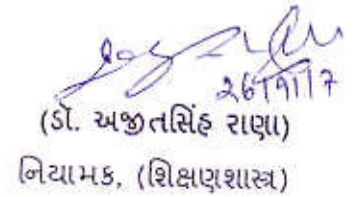 26/9/17
(ડૉ. અજીતસિંહ રાણા)
નિયામક, (શિક્ષણશાસ્ત્ર)